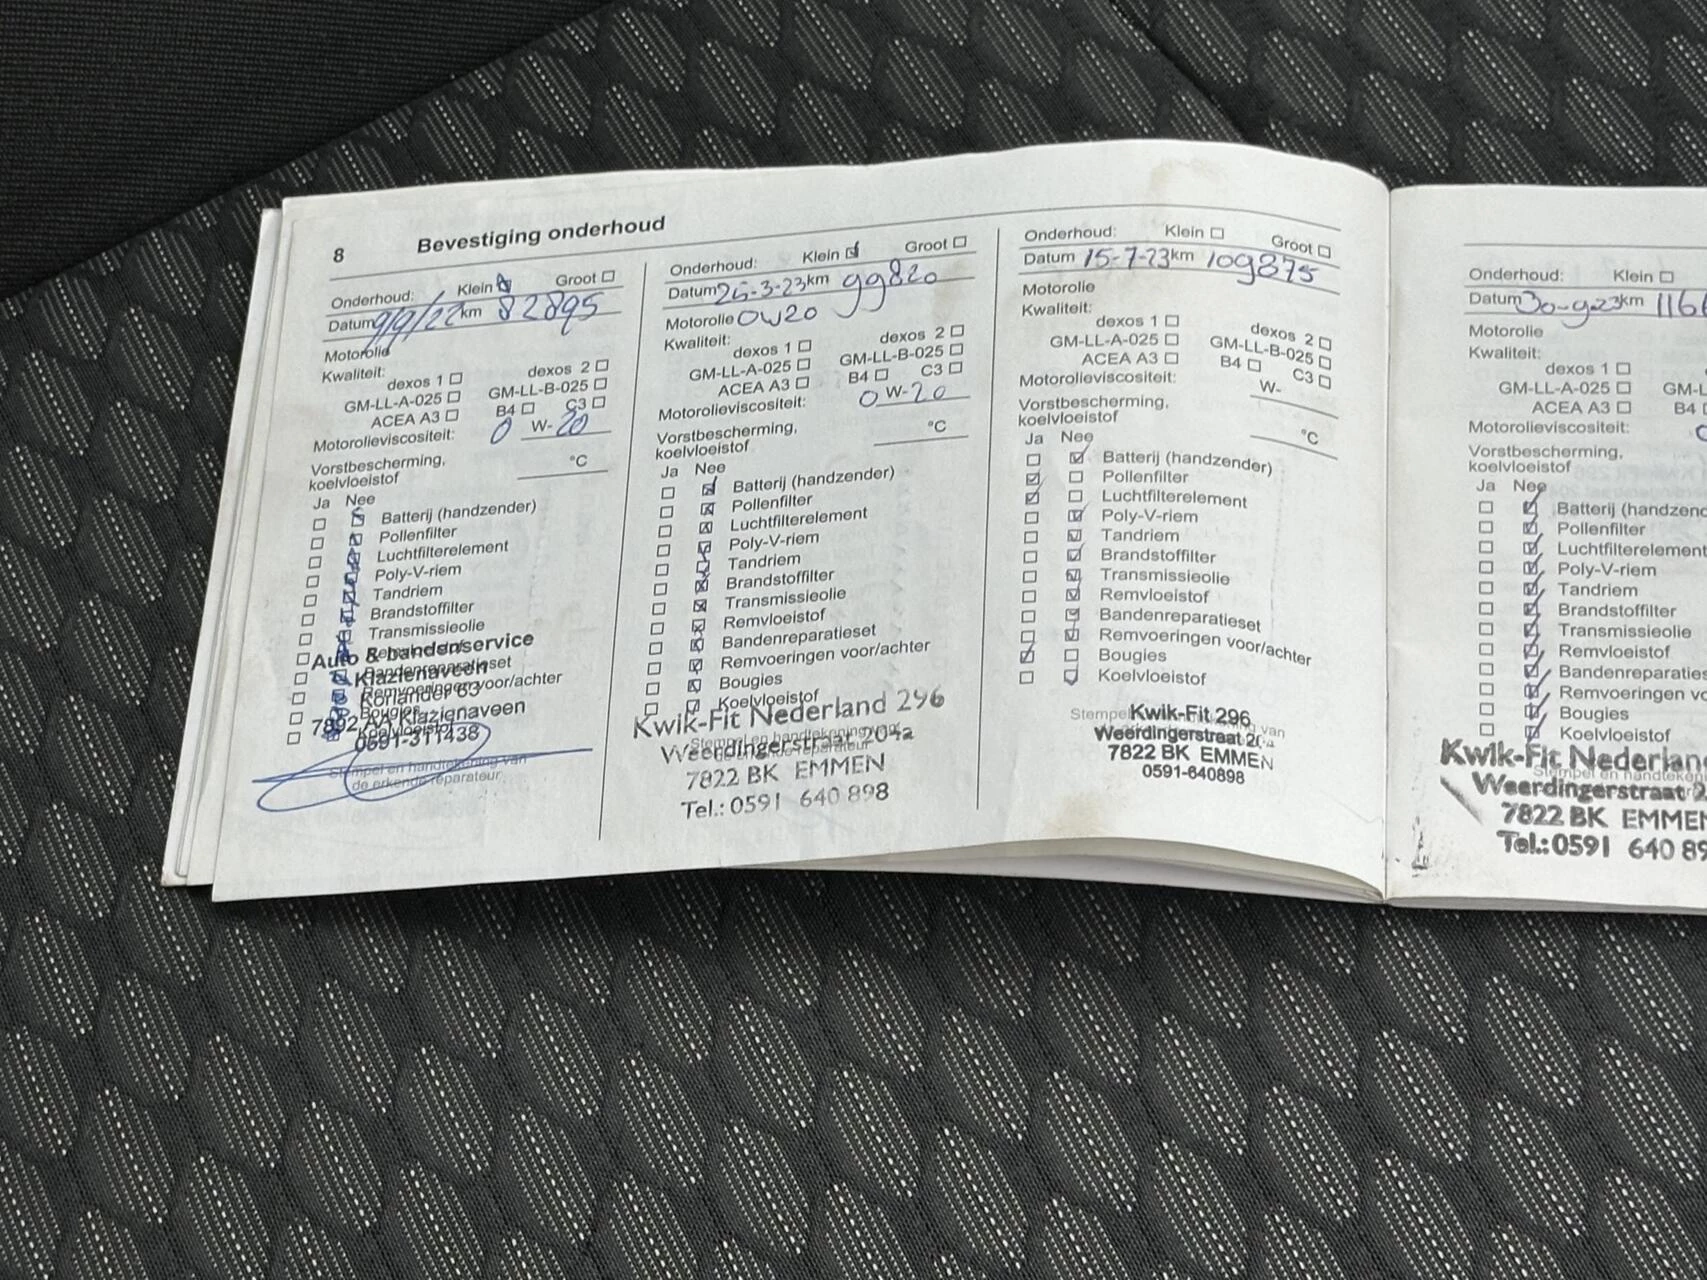 8 Bevestiging onderhoud
Onderhoud: Klein Groot
Datum 9/9/22 km 82895
Motorolie
Kwaliteit:
dexos 1 dexos 2
GM-LL-A-025 GM-LL-B-025
ACEA A3 B4 C3
Motorolieviscositeit: 0 W-20
Vorstbescherming,
koelvloeistof °C
Ja Nee
Batterij (handzender)
Pollenfilter
Luchtfilterelement
Poly-V-riem
Tandriem
Brandstoffilter
Transmissieolie
Remvloeistof
Bandenreparatieset
Remvoeringen voor/achter
Bougies
Koelvloeistof
Auto & bandenservice
Klazienaveen
Koriander 63
7892 AA Klazienaveen
0591-311438
Stempel en handtekening van
de erkende reparateur
Onderhoud: Klein Groot
Datum 25-3-23 km 99820
Motorolie 0W20
Kwaliteit:
dexos 1 dexos 2
GM-LL-A-025 GM-LL-B-025
ACEA A3 B4 C3
Motorolieviscositeit: 0 W-20
Vorstbescherming,
koelvloeistof °C
Ja Nee
Batterij (handzender)
Pollenfilter
Luchtfilterelement
Poly-V-riem
Tandriem
Brandstoffilter
Transmissieolie
Remvloeistof
Bandenreparatieset
Remvoeringen voor/achter
Bougies
Koelvloeistof
Kwik-Fit Nederland 296
Stempel en handtekening van
Weerdingerstraat 204a
de erkende reparateur
7822 BK EMMEN
Tel.: 0591 640 898
Onderhoud: Klein Groot
Datum 15-7-23 km 109875
Motorolie
Kwaliteit:
dexos 1 dexos 2
GM-LL-A-025 GM-LL-B-025
ACEA A3 B4 C3
Motorolieviscositeit: W-
Vorstbescherming,
koelvloeistof °C
Ja Nee
Batterij (handzender)
Pollenfilter
Luchtfilterelement
Poly-V-riem
Tandriem
Brandstoffilter
Transmissieolie
Remvloeistof
Bandenreparatieset
Remvoeringen voor/achter
Bougies
Koelvloeistof
Stempel van
Kwik-Fit 296
Weerdingerstraat
7822 BK EMMEN
0591-640898
Onderhoud: Klein
Datum 30-9-23 km 116
Motorolie
Kwaliteit:
dexos 1
GM-LL-A-025 GM-L
ACEA A3 B4
Motorolieviscositeit:
Vorstbescherming,
koelvloeistof
Ja Nee
Batterij (handzend
Pollenfilter
Luchtfilterelement
Poly-V-riem
Tandriem
Brandstoffilter
Transmissieolie
Remvloeistof
Bandenreparaties
Remvoeringen vo
Bougies
Koelvloeistof
Kwik-Fit Nederlan
Stempel en handteken
Weerdingerstraat 2
7822 BK EMMEN
Tel.: 0591 640 89